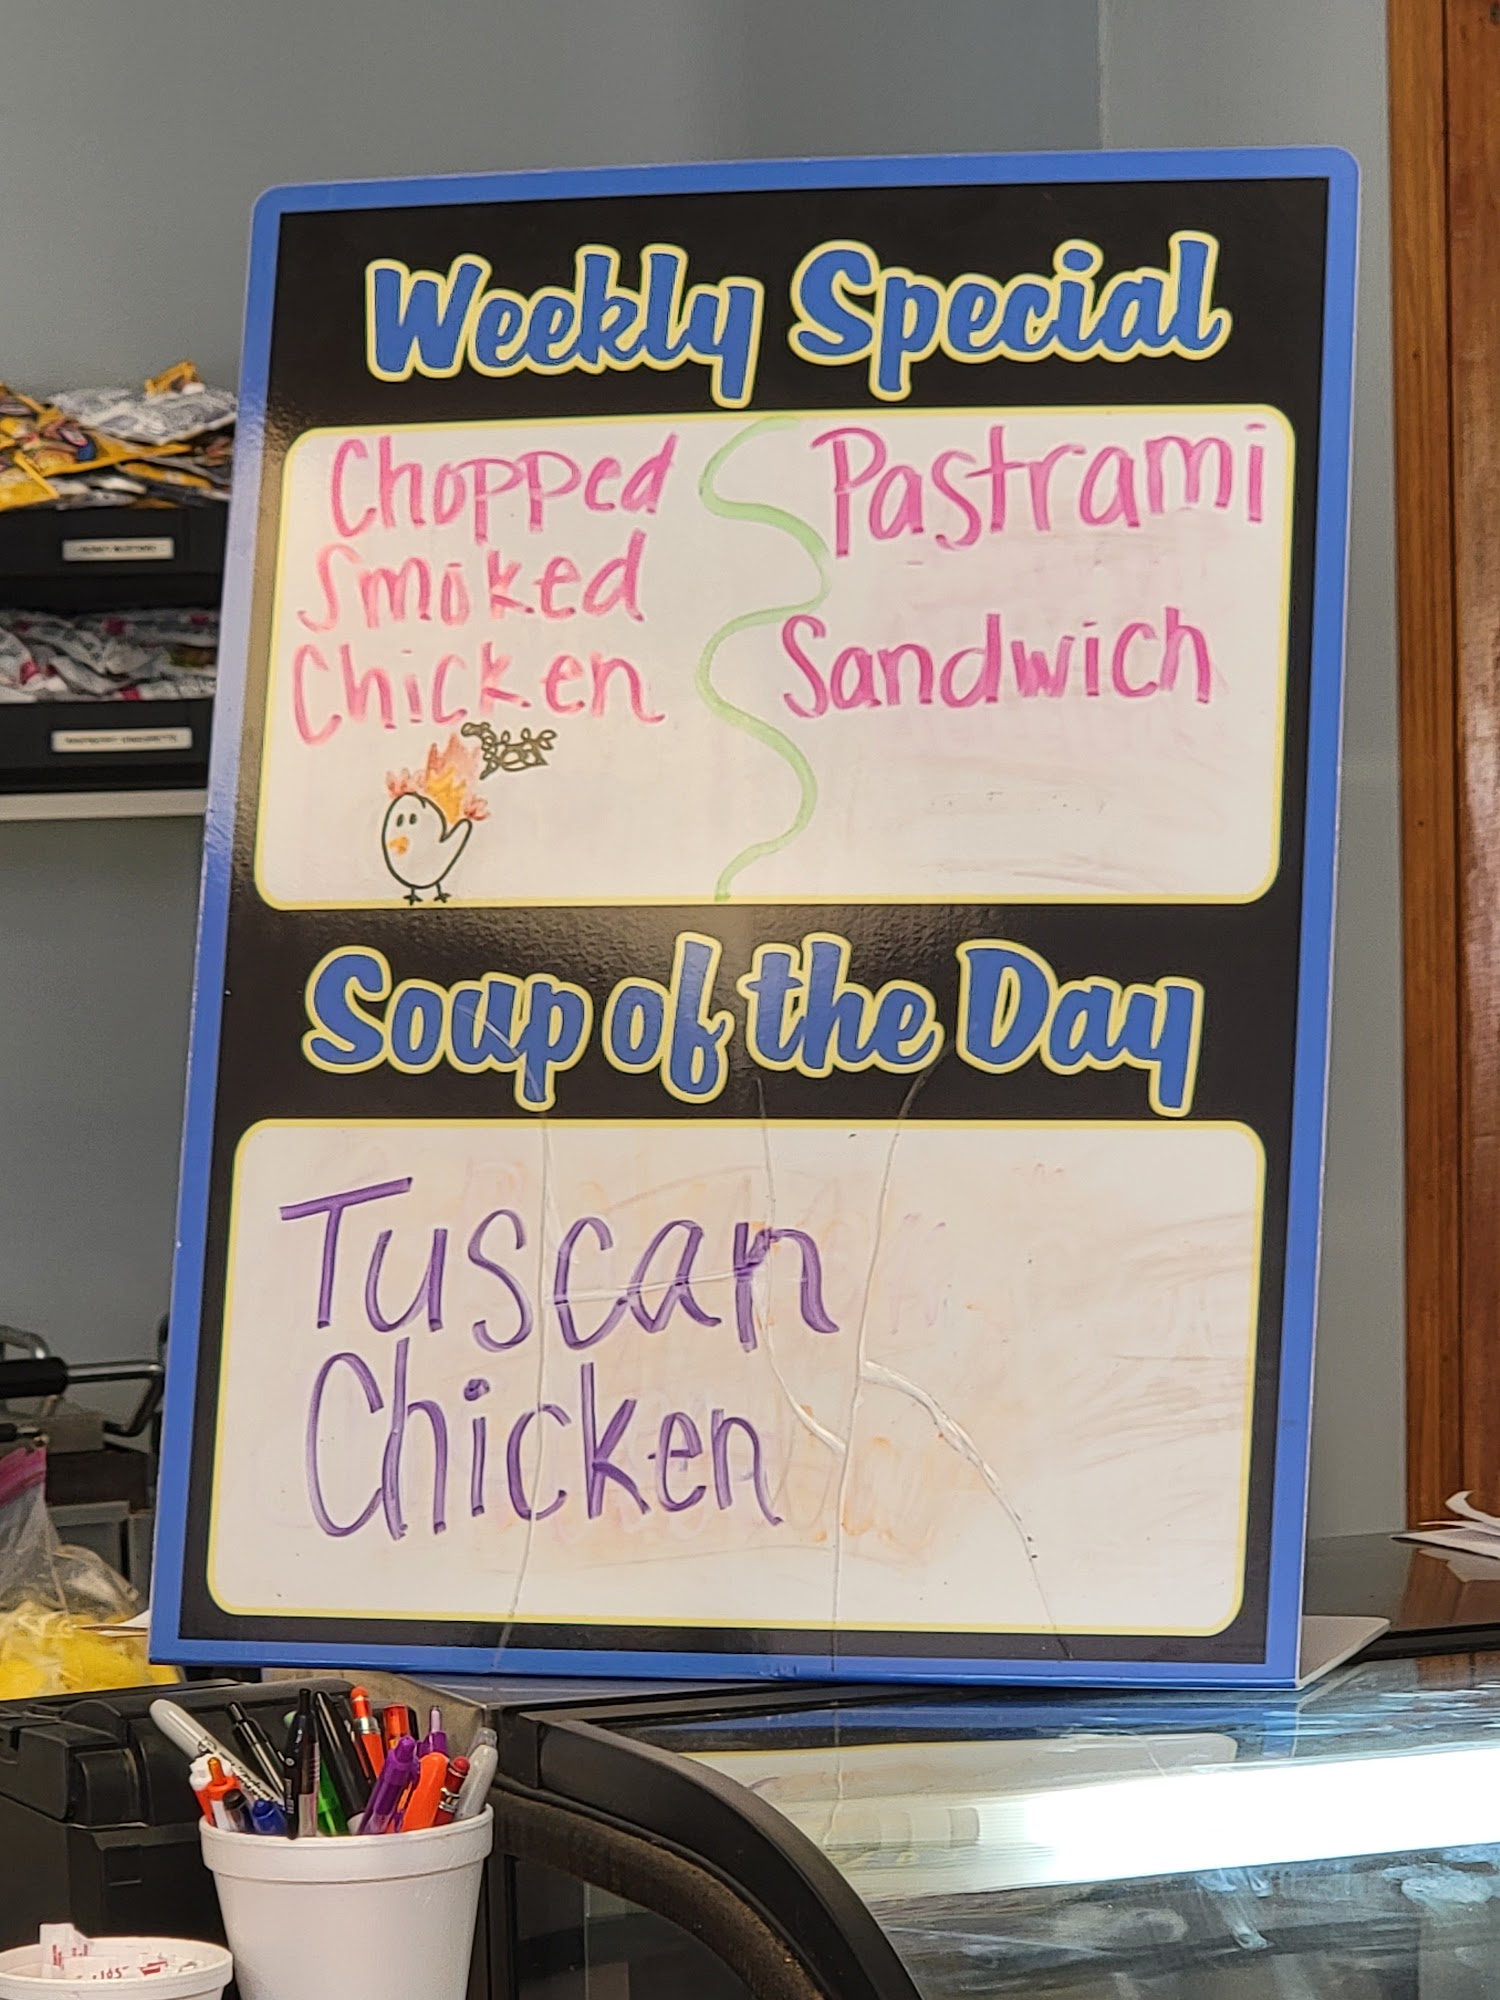 Weekly Special
Chopped
Smoked
Chicken
Pastrami
Sandwich
Soup of the Day
Tuscan
Chicken